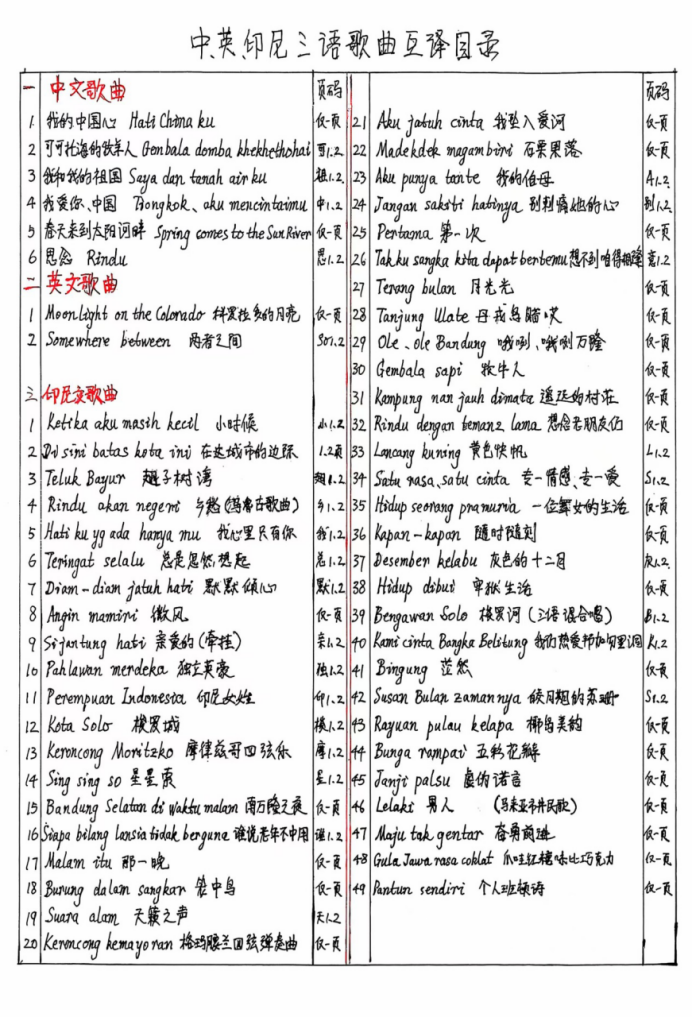 中英印尼三语歌曲互译目录
一 中文歌曲 页码
1 我的中国心 Hati China ku 仅一页
2 可可托海的牧羊人 Gembala domba khekhethohai 可1.2
3 我和我的祖国 Saya dan tanah air ku 祖1.2
4 我爱你、中国 Tiongkok、aku mencintaimu 中1.2
5 春天来到太阳河畔 Spring comes to the Sun River 仅一页
6 思念 Rindu 思1.2
二 英文歌曲
1 Moonlight on the Colorado 科罗拉多的月亮 仅一页
2 Somewhere between 两者之间 So1.2
三 印尼文歌曲
1 Ketika aku masih kecil 小时候 小1.2
2 Di sini batas kota ini 在这城市的边际 1.2页
3 Teluk Bayur 翅子树湾 翅1.2
4 Rindu akan negeri 乡愁 乡1.2
5 Hati ku yg ada hanya mu 我心里只有你 我1.2
6 Teringat selalu 总是忽然想起 总1.2
7 Diam-diam jatuh hati 默默倾心 默1.2
8 Angin mamiri 微风 仅一页
9 Si jantung hati 亲爱的(牵挂) 亲1.2
10 Pahlawan merdeka 独立英豪 独1.2
11 Perempuan Indonesia 印尼女性 印1.2
12 Kota Solo 梭罗城 梭1.2
13 Keroncong Moritzko 摩律兹哥四弦乐 摩1.2
14 Sing sing so 星星索 星1.2
15 Bandung Selatan di waktu malam 南万隆之夜 仅一页
16 Siapa bilang lansia tidak berguna 谁说老年不中用 谁1.2
17 Malam itu 那一晚 仅一页
18 Burung dalam sangkar 笼中鸟 仅一页
19 Suara alam 天籁之声 天1.2
20 Keroncong kemayoran 格玛腰兰四弦弹奏曲 仅一页
页码
21 Aku jatuh cinta 我坠入爱河 仅一页
22 Madekdek magambiri 石栗果落 仅一页
23 Aku punya tante 我的伯母 A1.2
24 Jangan sakiti hatinya 别刺痛她的心 别1.2
25 Pertama 第一次 仅一页
26 Tak ku sangka kita dapat bertemu 想不到咱得相逢 意1.2
27 Terang bulan 月光光 仅一页
28 Tanjung Ulate 丹戎乌腊哎 仅一页
29 Ole、ole Bandung 哦唎、哦唎万隆 仅一页
30 Gembala sapi 牧牛人 仅一页
31 Kampung nan jauh dimata 遥远的村庄 仅一页
32 Rindu dengan teman2 lama 想念老朋友们 仅一页
33 Lancang kuning 黄色快帆 L1.2
34 Satu rasa、satu cinta 专一情感、专一爱 S1.2
35 Hidup seorang pramuria 一位舞女的生活 仅一页
36 Kapan-kapan 随时随刻 仅一页
37 Desember kelabu 灰色的十二月 灰1.2
38 Hidup dibui 牢狱生活 仅一页
39 Bengawan Solo 梭罗河(三语混合唱) B1.2
40 Kami cinta Bangka Belitung 我们热爱邦加勿里洞 K1.2
41 Bingung 茫然 仅一页
42 Susan Bulan zamannya 候月翘的苏珊 S1.2
43 Rayuan pulau kelapa 椰岛美韵 仅一页
44 Bunga rampai 五彩花瓣 仅一页
45 Janji palsu 虚伪诺言 仅一页
46 Lelaki 男人 (马来亚市井民歌) 仅一页
47 Maju tak gentar 奋勇前进 仅一页
48 Gula Jawa rasa coklat 爪哇红糖味比巧克力 仅一页
49 Pantun sendiri 个人班顿诗 仅一页